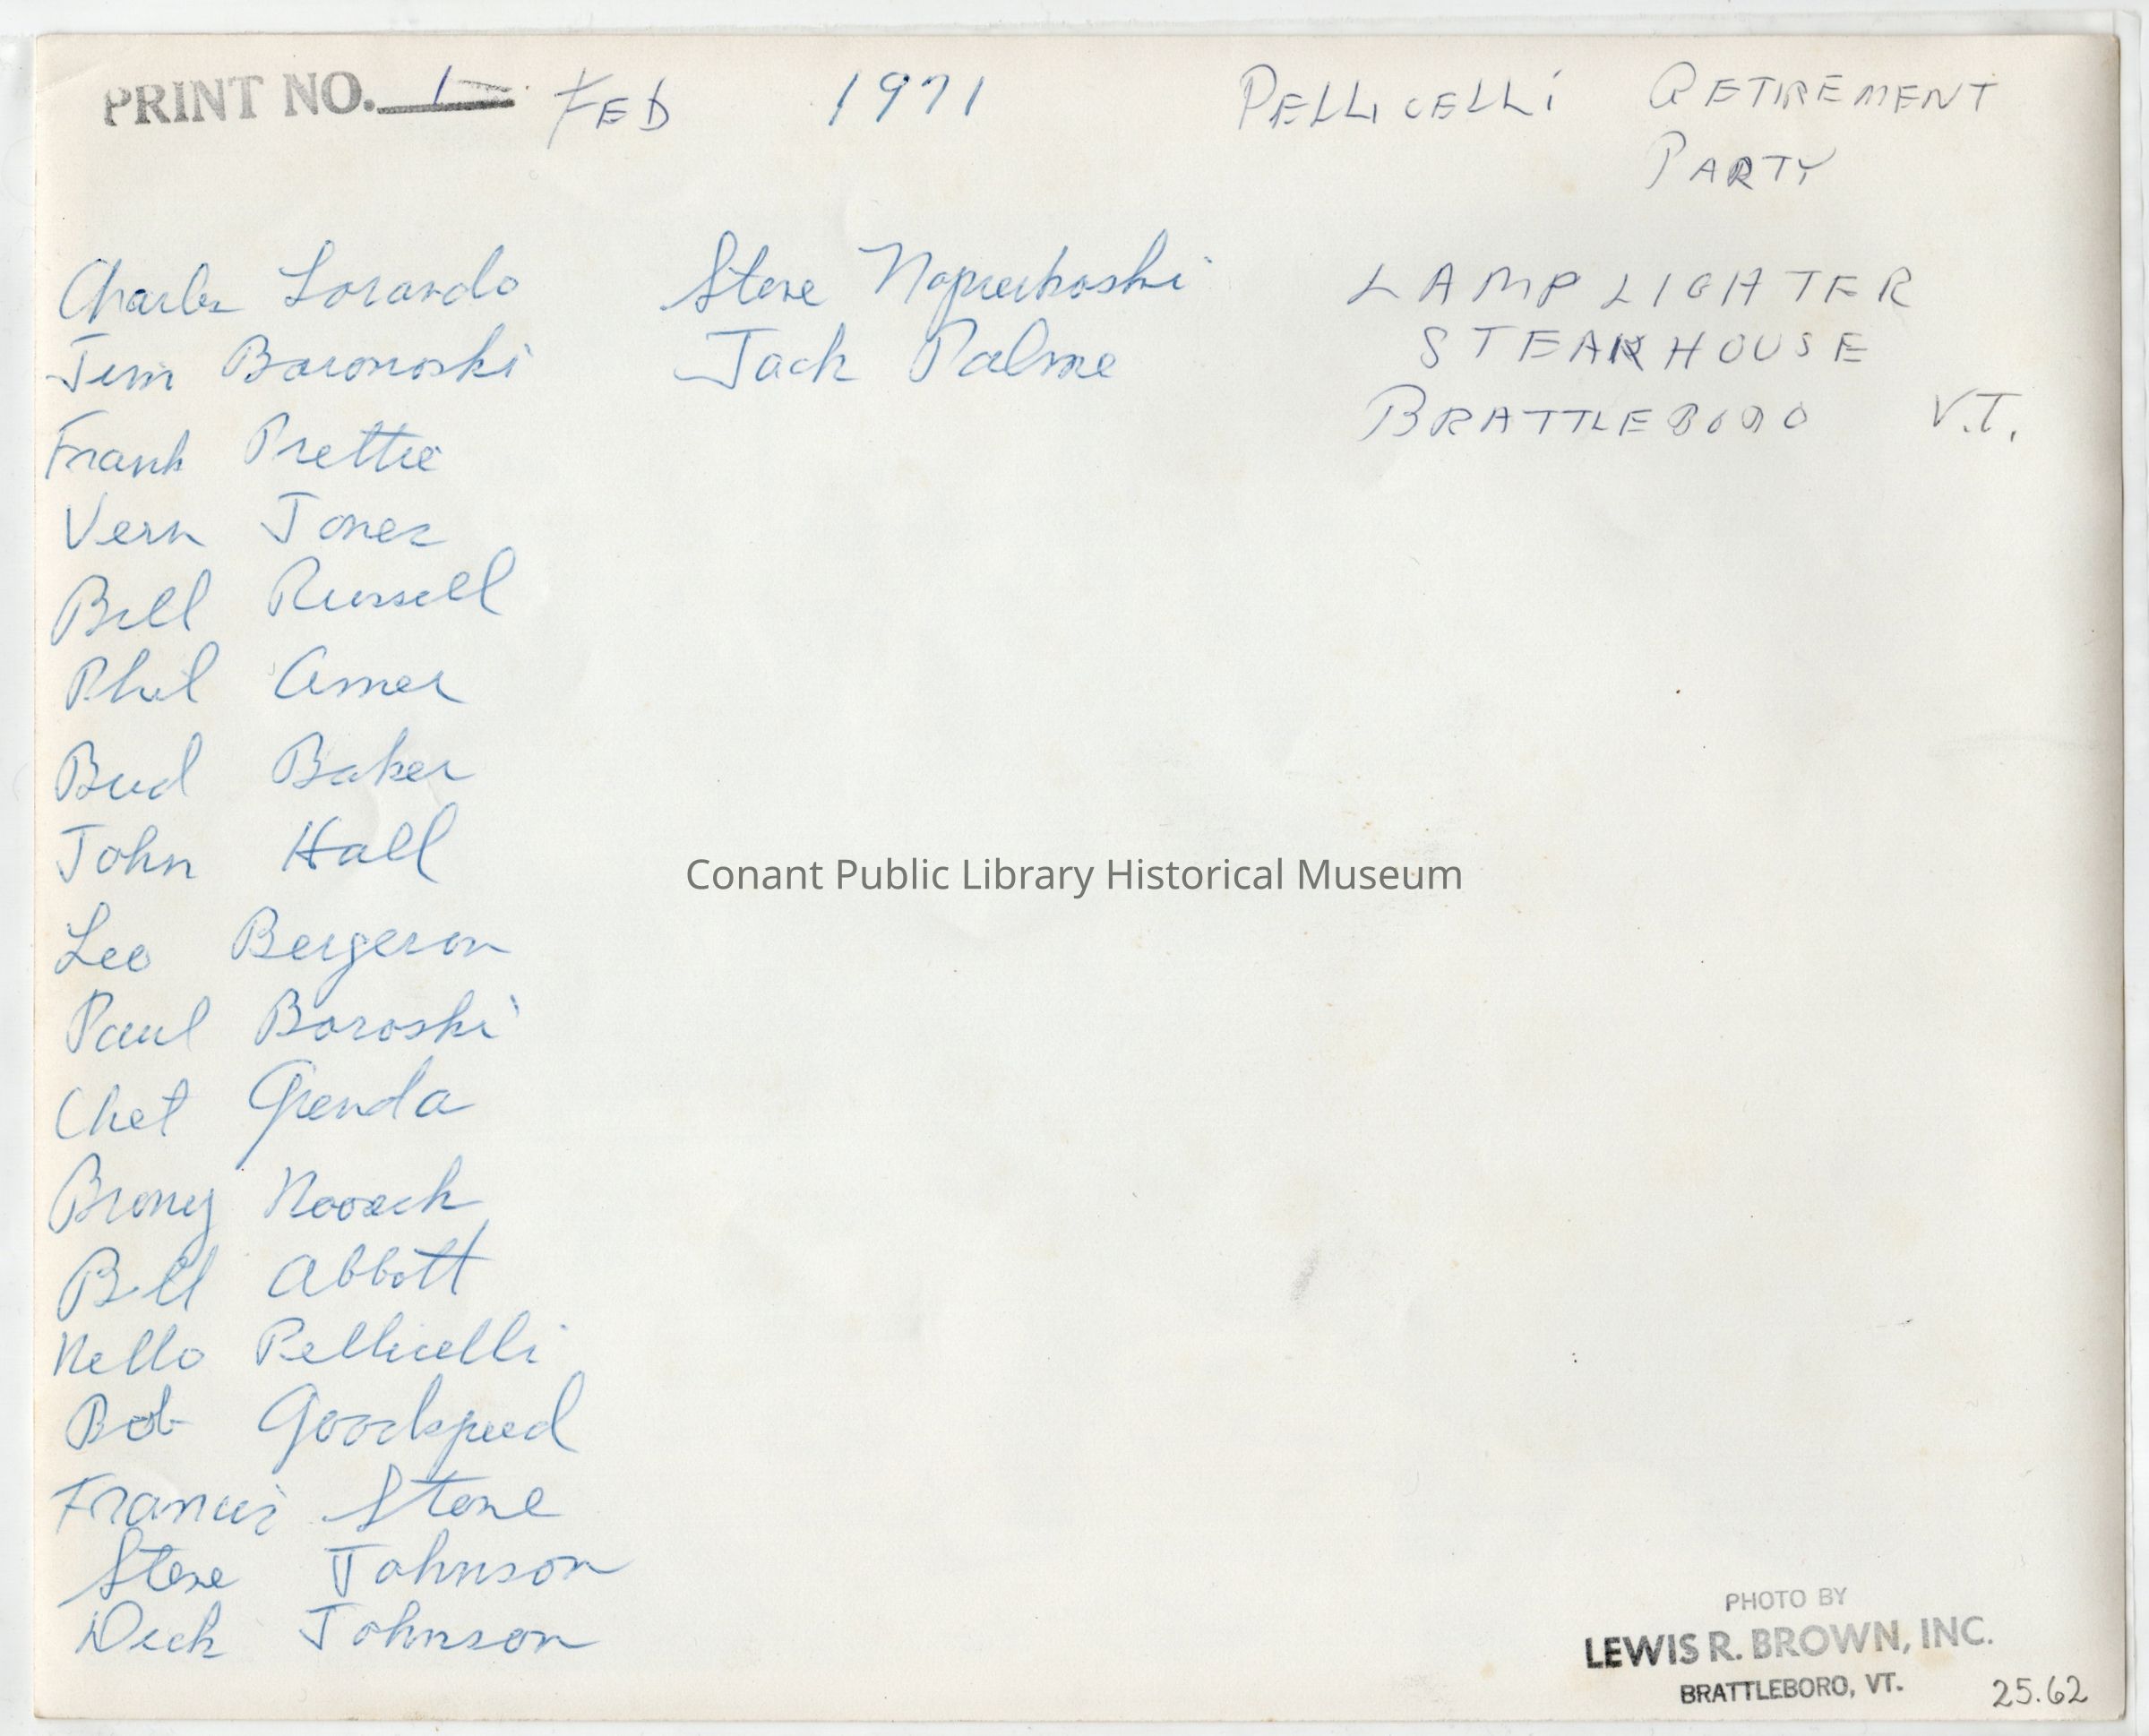 PRINT NO. 1 FEB 1971 PELLICELLI RETIREMENT
PARTY
Charles Lorando
Jim Baronoski
Frank Prettie
Vern Jones
Bill Russell
Phil Amer
Bud Baker
John Hall
Leo Bergeron
Paul Boroski
Chet Grenda
Broney
Bill Abbott
Nello Pellicelli
Bob Goodspeed
Francis Stone
Steve Johnson
Dick Johnson
Steve
Jack Palme
LAMPLIGHTER
STEAKHOUSE
BRATTLEBORO V.T.
Conant Public Library Historical Museum
PHOTO BY
LEWIS R. BROWN, INC.
BRATTLEBORO, VT.
25.62